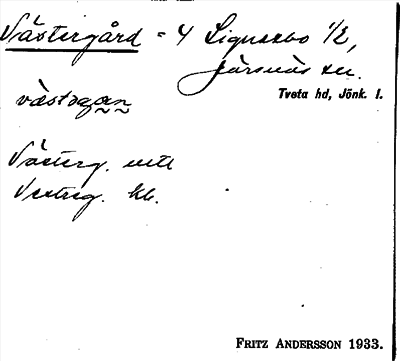 Västergård = 4 Lignarbo 1/2,
Järsnäs sn.
Tveta hd, Jönk. l.
västəgan
Västerg.
Vestreg. kb.
FRITZ ANDERSSON 1933.